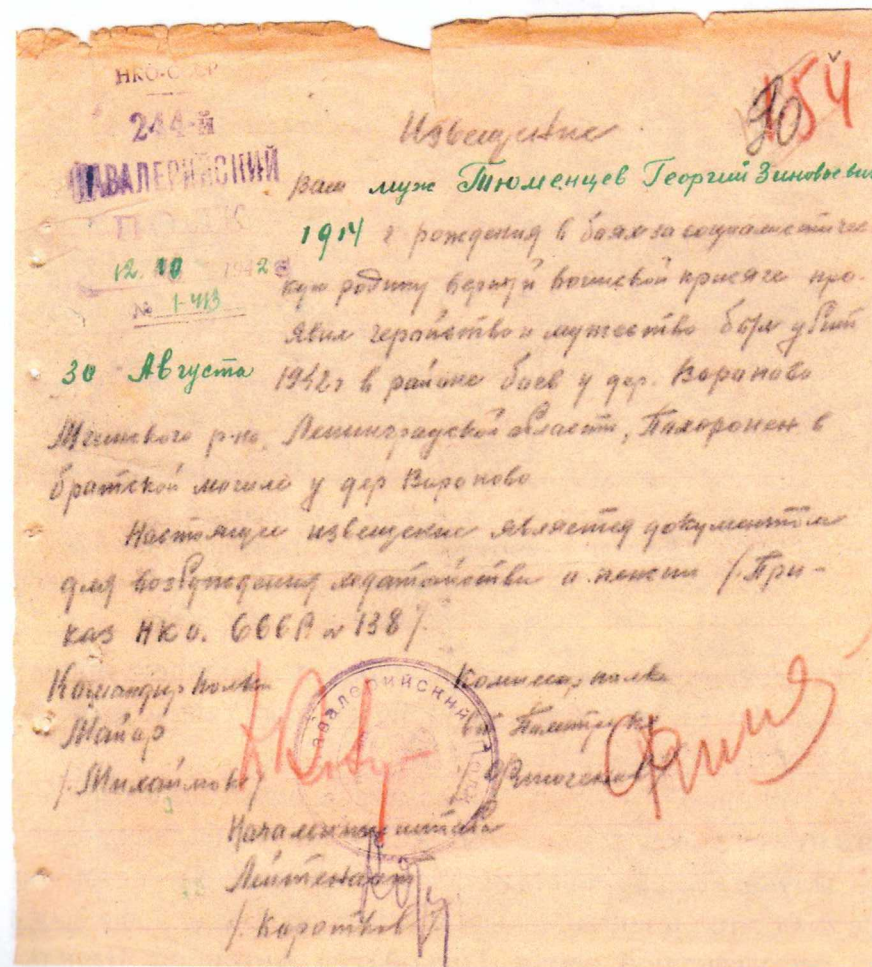 НКО-СССР
154
90
244-й
КАВАЛЕРИЙСКИЙ
ПОЛК
12. 10 1942
№ 1-413
Извещение
Ваш муж Тюменцев Георгий Зиновьевич
1914 г рождения в боях за социалистичес-
кую родину верный воинской присяге про-
явил геройство и мужество был убит
30 Августа 1942 г в районе боев у дер. Вороново
Мгинского р-на, Ленинградской области, Похоронен в
братской могиле у дер Вороново
Настоящее извещение является документом
для возбуждения ходатайства о пенсии /. При-
каз НКО. СССР № 138/.
Командир полка
Майор
/. Михайлов /
Комиссар полка
Политрук
кавалерийский
Начальник штаба
Лейтенант
/. Коротков /